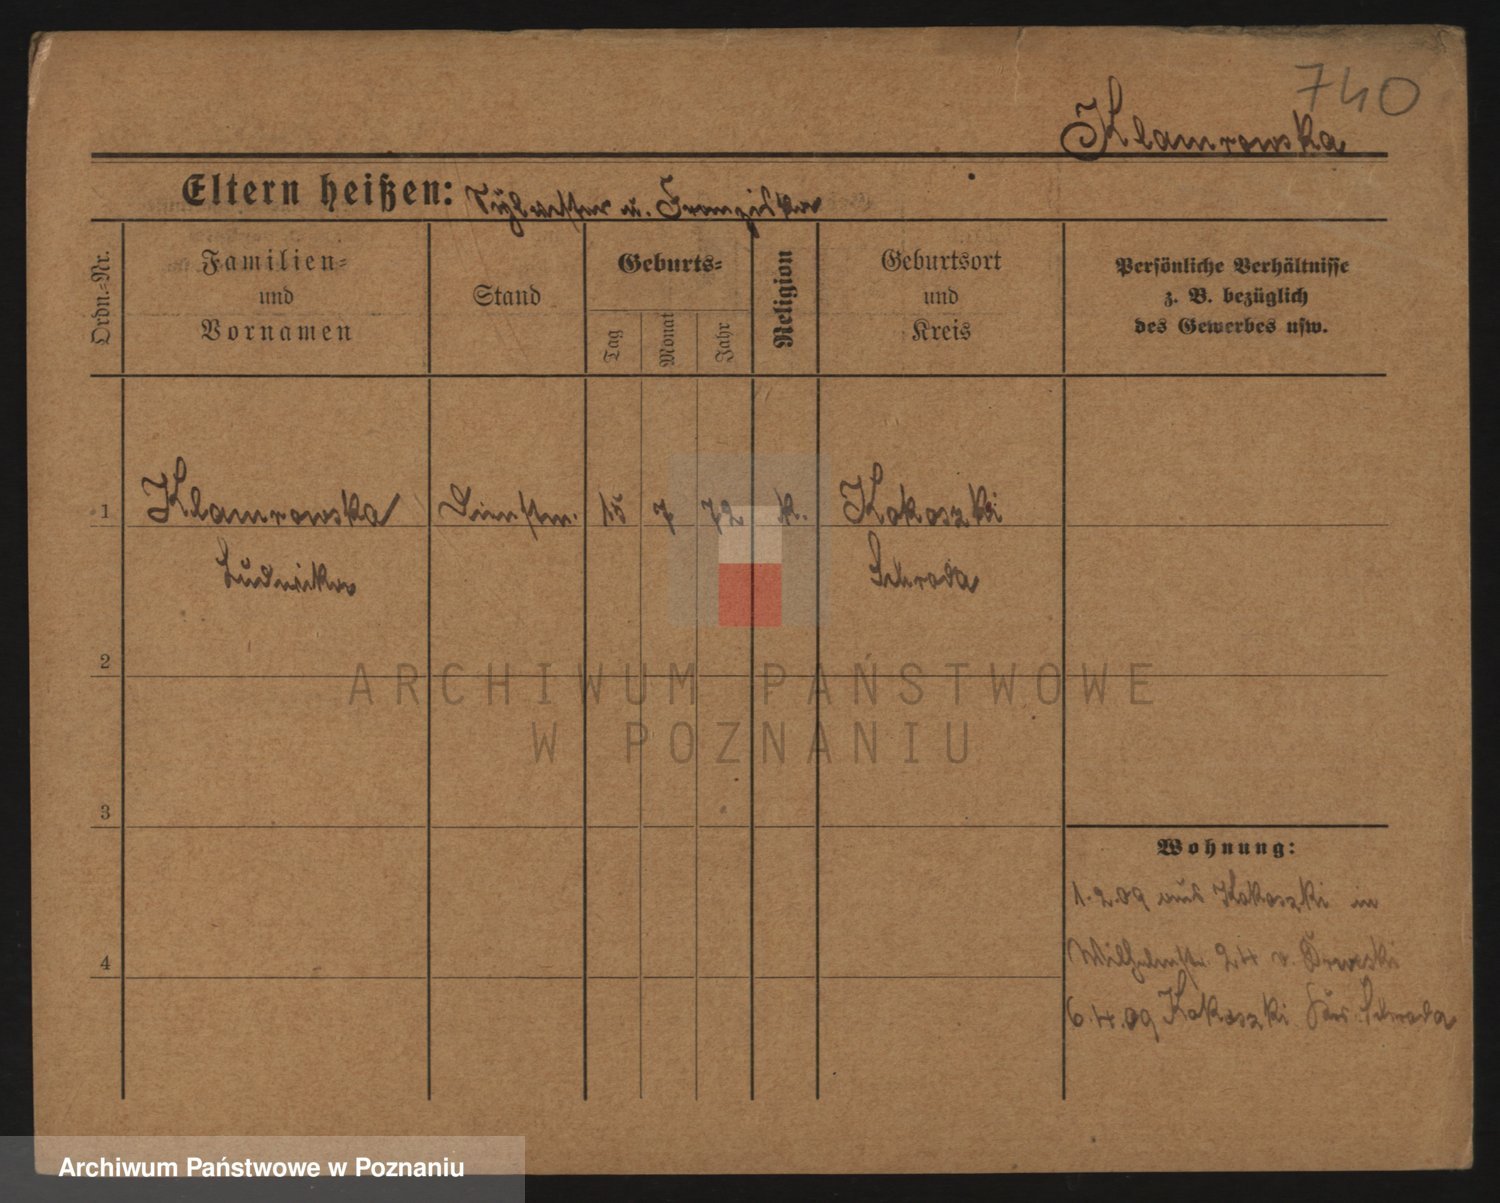 740
Klamrowska
Eltern heißen: Sylvester u. Franziska
Ordn.-Nr.
Familien-
und
Vornamen
Stand
Geburts-
Tag
Monat
Jahr
Religion
Geburtsort
und
Kreis
Persönliche Verhältnisse
z. B. bezüglich
des Gewerbes usw.
1 Klamrowska Dienstm. 15 7 72 k. Kokoszki
Ludwika Schroda
2
3
4
Wohnung:
1.2.09 aus Kokoszki in
Wilhelmstr. 24 v.
6.4.09 Kokoszki Krs. Schroda
ARCHIWUM PAŃSTWOWE
W POZNANIU
Archiwum Państwowe w Poznaniu